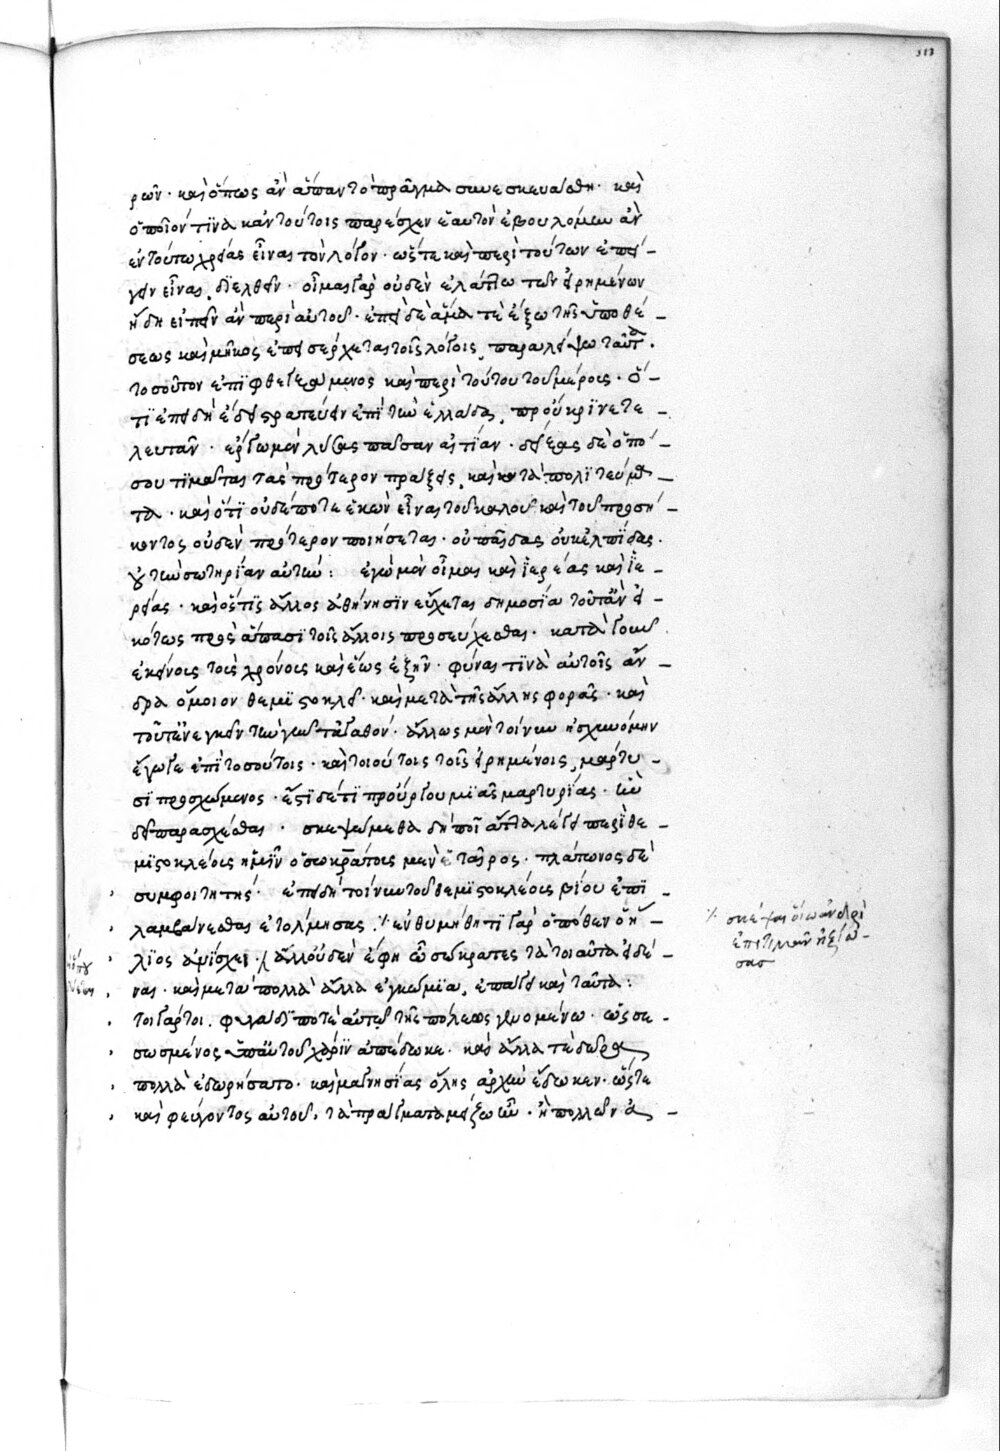 313
ρῶν · καὶ ὅπως ἂν ἅπαν τὸ πρᾶγμα συνεσκευάσθη · καὶ
ὁποῖόν τινα κἀν τούτοις παρέσχεν ἑαυτὸν ἐβουλόμην ἂν
ἐν τούτῳ χρείας εἶναι τὸν λόγον · ὥστε καὶ περὶ τούτων ἐπεί-
γειν εἶναι διελθεῖν · οἶμαι γὰρ οὐδὲν ἐλάττω τῶν εἰρημένων
ἤδη εἰπεῖν ἂν περὶ αὐτοῦ · ἐπεὶ δὲ ἅμα τὲ ἔξω τῆς ὑποθέ-
σεως καὶ μῆκος ἐπεισέρχεται τοῖς λόγοις, παραλείψω ταῦτα ·
τοσοῦτον ἐπιφθεγξάμενος καὶ περὶ τούτου τοῦ μέρους · ὅ-
τι ἐπειδὴ ἔδει στρατεύειν ἐπὶ τὴν ἑλλάδα, προὔκρινε τε-
λευτᾶν · ἔργῳ μὲν λύσας πᾶσαν αἰτίαν · δείξας δὲ ὁπό-
σου τιμᾶται τὰς πρότερον πράξεις, καὶ τὰ πολιτεύμα-
τα · καὶ ὅτι οὐδέποτε ἑκὼν εἶναι τοῦ καλοῦ καὶ τοῦ προσή-
κοντος οὐδὲν πρότερον ποιήσεται · οὐ παῖδας οὐκ ἐλπίδας ·
οὐ τὴν σωτηρίαν αὐτήν : ἐγὼ μὲν οἶμαι καὶ ἱερέας καὶ ἱε-
ρείας · καὶ ὅστις ἄλλος ἀθήνησιν εὔχεται δημοσίᾳ τοῦτ' ἂν εἰ-
κότως πρὸς ἅπασι τοῖς ἄλλοις προσεύχεσθαι · κατὰ γοῦν
ἐκείνους τοὺς χρόνους καὶ ἕως ἐξῆν · φῦναί τινα αὐτοῖς ἄν-
δρα ὅμοιον θεμιστοκλεῖ · καὶ μετὰ τῆς ἄλλης φορᾶς · καὶ
τοῦτ' ἐνεγκεῖν τὴν γῆν τἀγαθόν · ἄλλως μὲν τοίνυν ᾐσχυνόμην
ἔγωγε ἐπὶ τοσούτοις · καὶ τοιούτοις τοῖς εἰρημένοις, μάρτυ-
σι προσχρώμενος · ἔστι δέ τι προὔργου μιᾶς μαρτυρίας · εὖ
δεῖ παρασχέσθαι · σκεψώμεθα δὴ ποῖ' ἄττα λέγει περὶ θε-
μιστοκλέους ἡμῖν ὁ σωκράτους μὲν ἑταῖρος · πλάτωνος δὲ
συμφοιτητής · ἐπειδὴ τοίνυν τοῦ θεμιστοκλέους βίου ἐπι-
λαμβάνεσθαι ἐτόλμησας ·⁒ ἐνθυμήθητι γὰρ ὁπόθεν ὁ ἥ-
λιος ἀνίσχει · ἀλλ' οὐδὲν ἔφη ὦ σώκρατες τὰ τοιαῦτα εἰδέ-
ναι · καὶ μετὰ πολλὰ ἄλλα ἐγκώμια, ἐπάγει καὶ ταῦτα :
τοιγάρτοι · φυγάδι ποτὲ αὐτῷ τῆς πόλεως γενομένῳ · ὡς σε-
σωσμένος ὑπ' αὐτοῦ χάριν ἀπέδωκε · καὶ ἄλλα τὲ δῶρα
πολλὰ ἐδωρήσατο · καὶ μαγνησίας ὅλης ἀρχὴν ἔδωκεν · ὥστε
καὶ φεύγοντος αὐτοῦ, τὰ πράγματα μείζω ἦν · ἢ πολλῶν ἀ-
⁒ σκέψαι οἵῳ ἀνδρὶ
ἐπιτιμᾶν ἠξίω-
σας